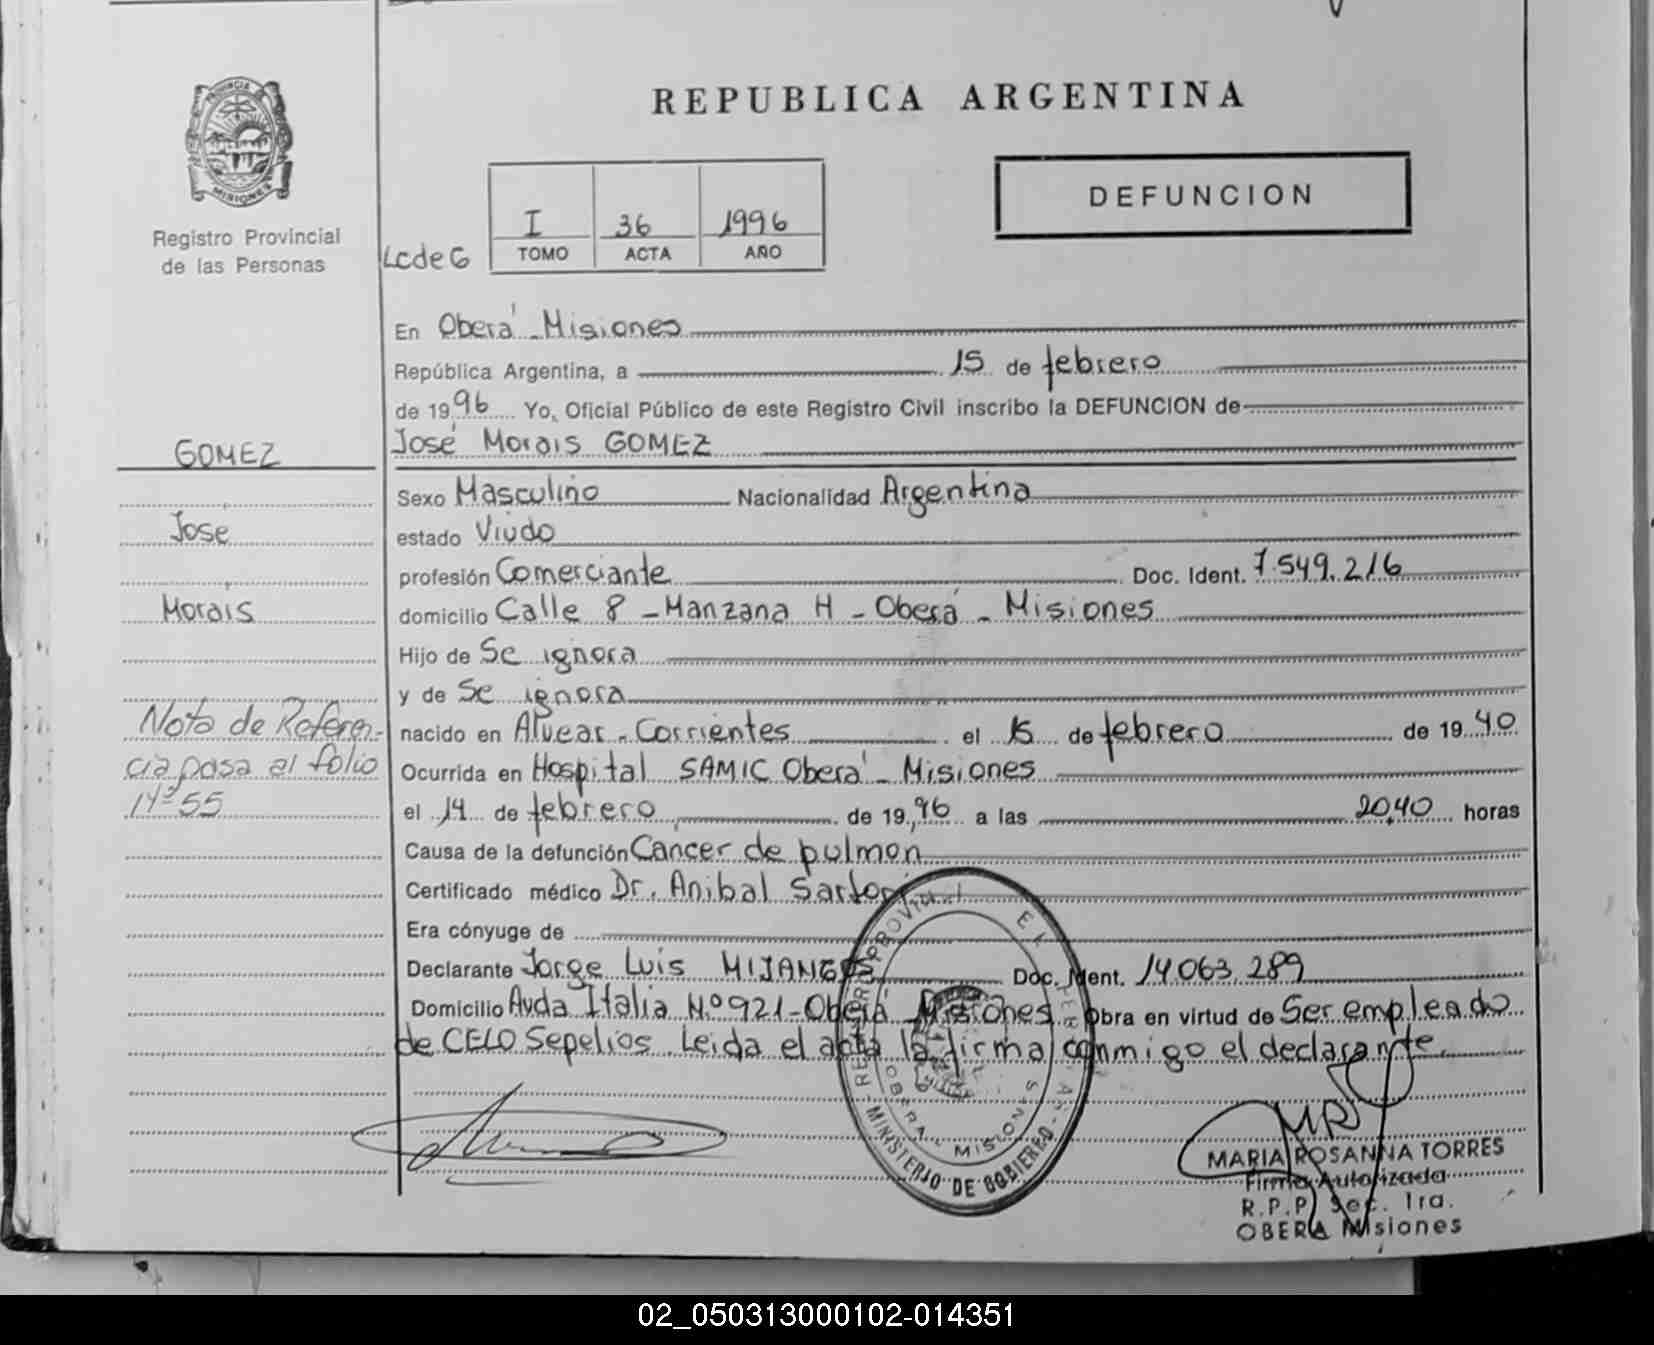 REPUBLICA ARGENTINA
PROVINCIA DE
MISIONES
Registro Provincial
de las Personas
DEFUNCION
LcdeG
I 36 1996
TOMO ACTA AÑO
En Oberá - Misiones
República Argentina, a 15 de febrero
de 1996 Yo, Oficial Público de este Registro Civil inscribo la DEFUNCION de
José Morais GOMEZ
GOMEZ
Jose
Morais
Nota de Referen-
cia pasa al folio
Nº 55
Sexo Masculino Nacionalidad Argentina
estado Viudo
profesión Comerciante Doc. Ident. 7.549.216
domicilio Calle 8 - Manzana H - Oberá - Misiones
Hijo de Se ignora
y de Se ignora
nacido en Alvear - Corrientes el 15 de febrero de 1940
Ocurrida en Hospital SAMIC Oberá - Misiones
el 14 de febrero de 1996 a las 20,40 horas
Causa de la defunción Cancer de pulmon
Certificado médico Dr. Anibal Sartori
Era cónyuge de
Declarante Jorge Luis MIJANGOS Doc. Ident. 14.063.289
Domicilio Avda Italia Nº 921 - Oberá - Misiones Obra en virtud de Ser empleado
de CELO Sepelios. Leida el acta la firma conmigo el declarante.
MINISTERIO DE GOBIERNO
OBERA - MISIONES
MARIA ROSANNA TORRES
Firma Autorizada
R.P.P. Sec. 1ra.
OBERA Misiones
02_050313000102-014351